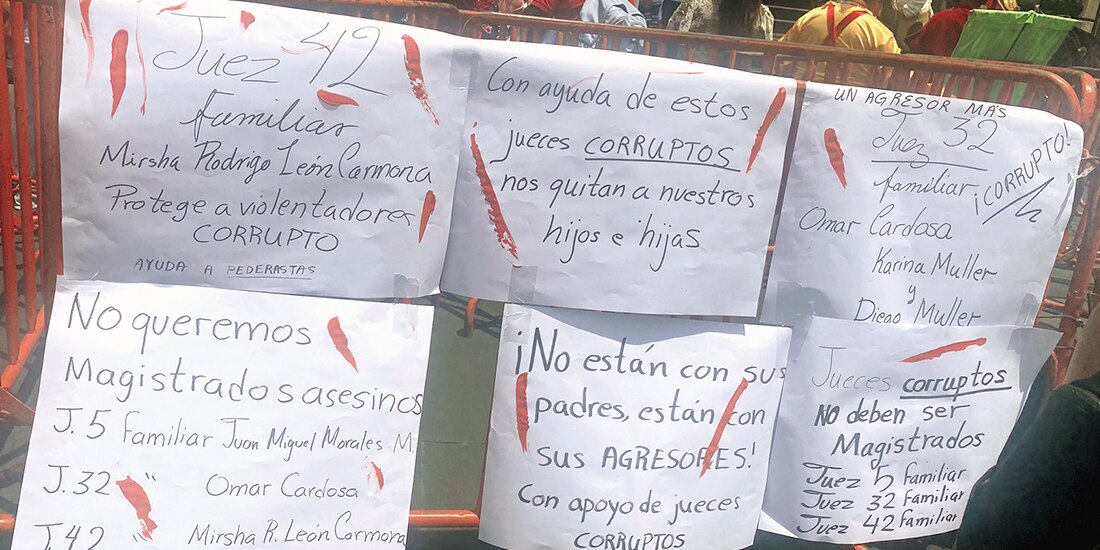 Juez 42
familiar
Mirsha Rodrigo León Carmona
Protege a violentadores
CORRUPTO
AYUDA A PEDERASTAS
Con ayuda de estos
jueces CORRUPTOS
nos quitan a nuestros
hijos e hijas
UN AGRESOR MÁS
Juez 32
familiar
¡CORRUPTO!
Omar Cardosa
Karina Muller
y
Diego Muller
No queremos
Magistrados asesinos
J. 5 familiar Juan Miguel Morales M.
J. 32 " Omar Cardosa
J. 42 Mirsha R. León Carmona
¡No están con sus
padres, están con
sus AGRESORES!
Con apoyo de jueces
CORRUPTOS
Jueces corruptos
NO deben ser
Magistrados
Juez 5 familiar
Juez 32 familiar
Juez 42 familiar